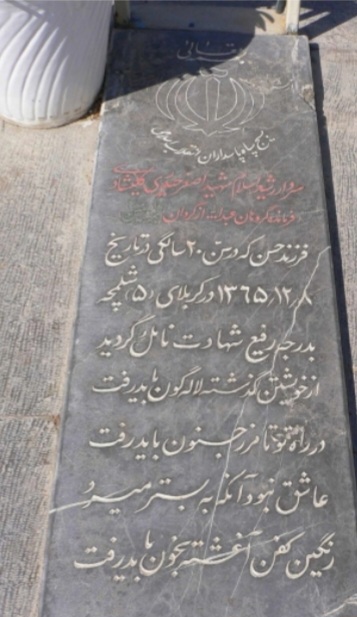 بسمه تعالی
سپاه پاسداران انقلاب اسلامی
سردار رشید اسلام شهید اصغر حسینی
فرمانده گروهان
فرزند حسن که در سن ۲۰ سالگی در تاریخ
۱۳۶۵/۱۲/۸ در کربلای ۵، شلمچه
بدرجه رفیع شهادت نائل گردید
از خویشتن گذشته لاله گون باید رفت
در راه تو تا مرز جنون باید رفت
عاشق نبود آنکه به بستر میرد
رنگین کفن آغشته بخون باید رفت